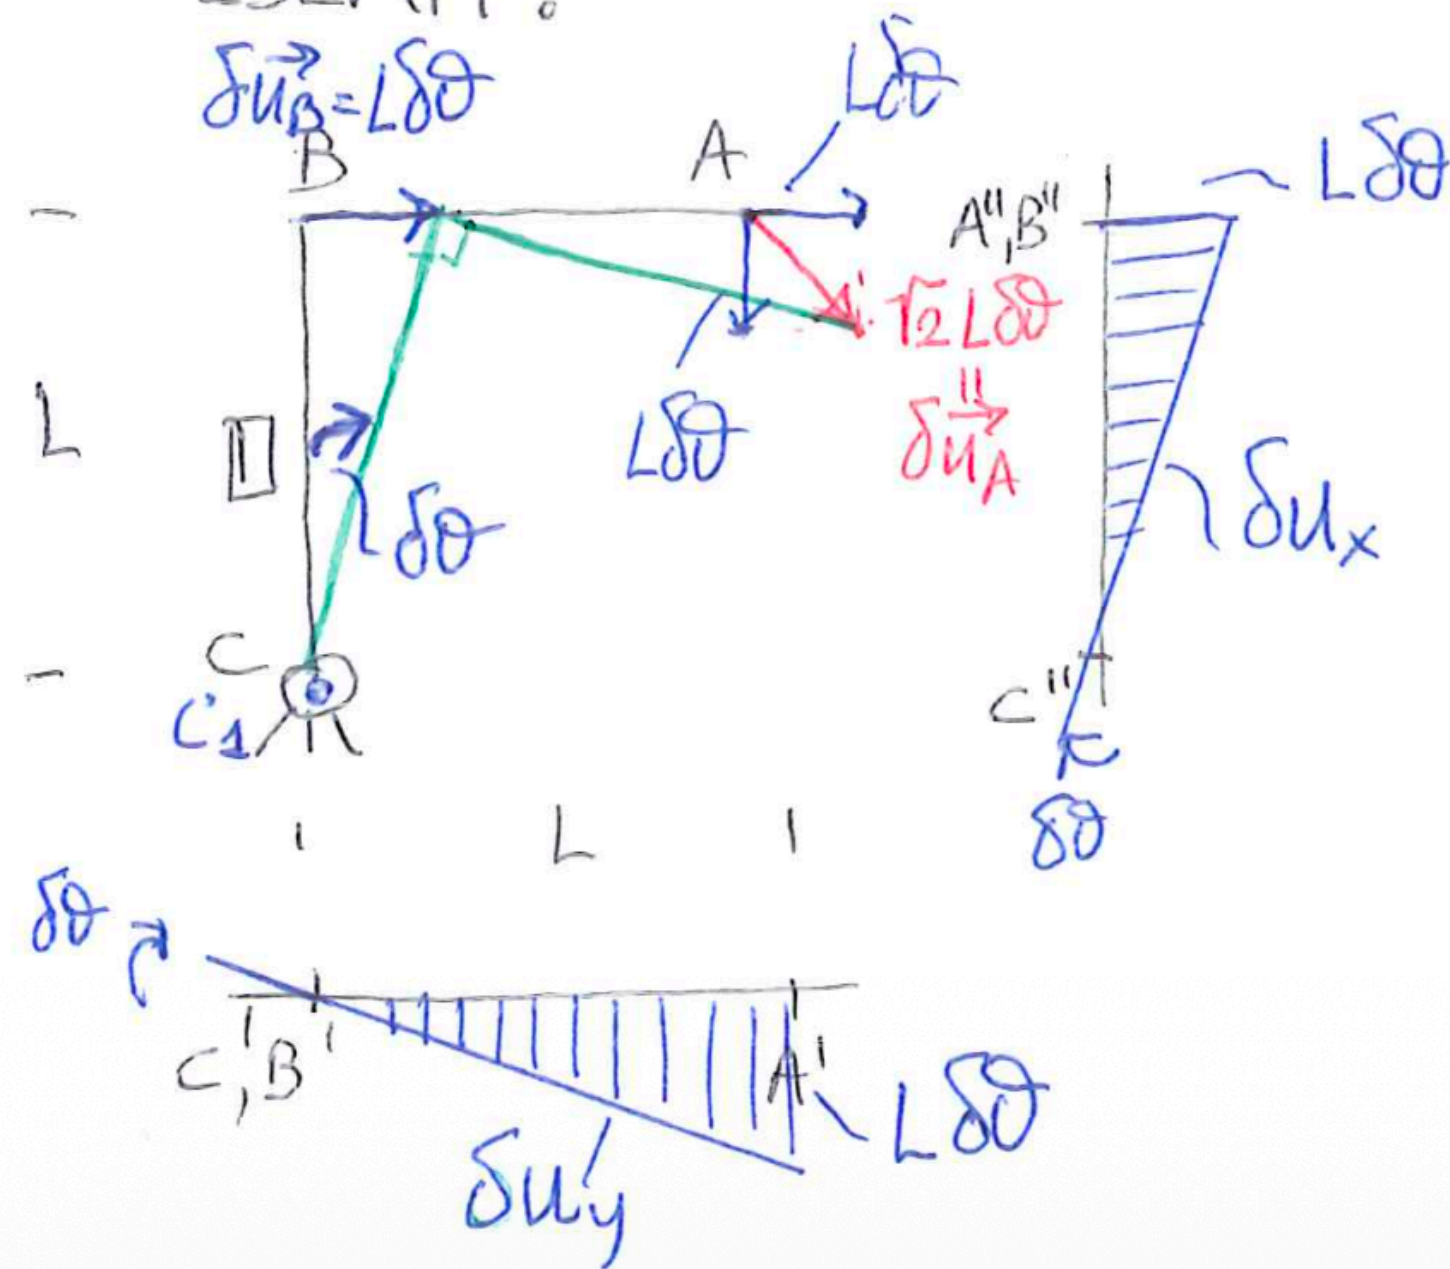 δu⃗_B = Lδθ
Lδθ
B
A
Lδθ
A'',B''
√2 Lδθ
=
δu⃗_A
L
I
Lδθ
δθ
δu_x
C
C1
C''
δθ
L
δθ
C',B'
A'
Lδθ
δu_y